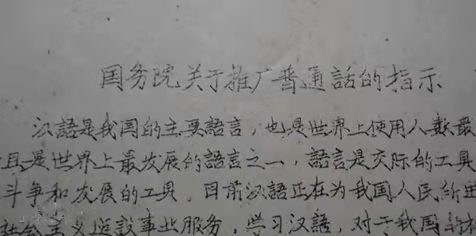 国务院关于推广普通話的指示
汉語是我国的主要語言，也是世界上使用人数最
且是世界上最发展的語言之一，語言是交际的工具
斗争和发展的工具。目前汉語正在为我国人民所
社会主义建設事业服务，学习汉語，对于我国